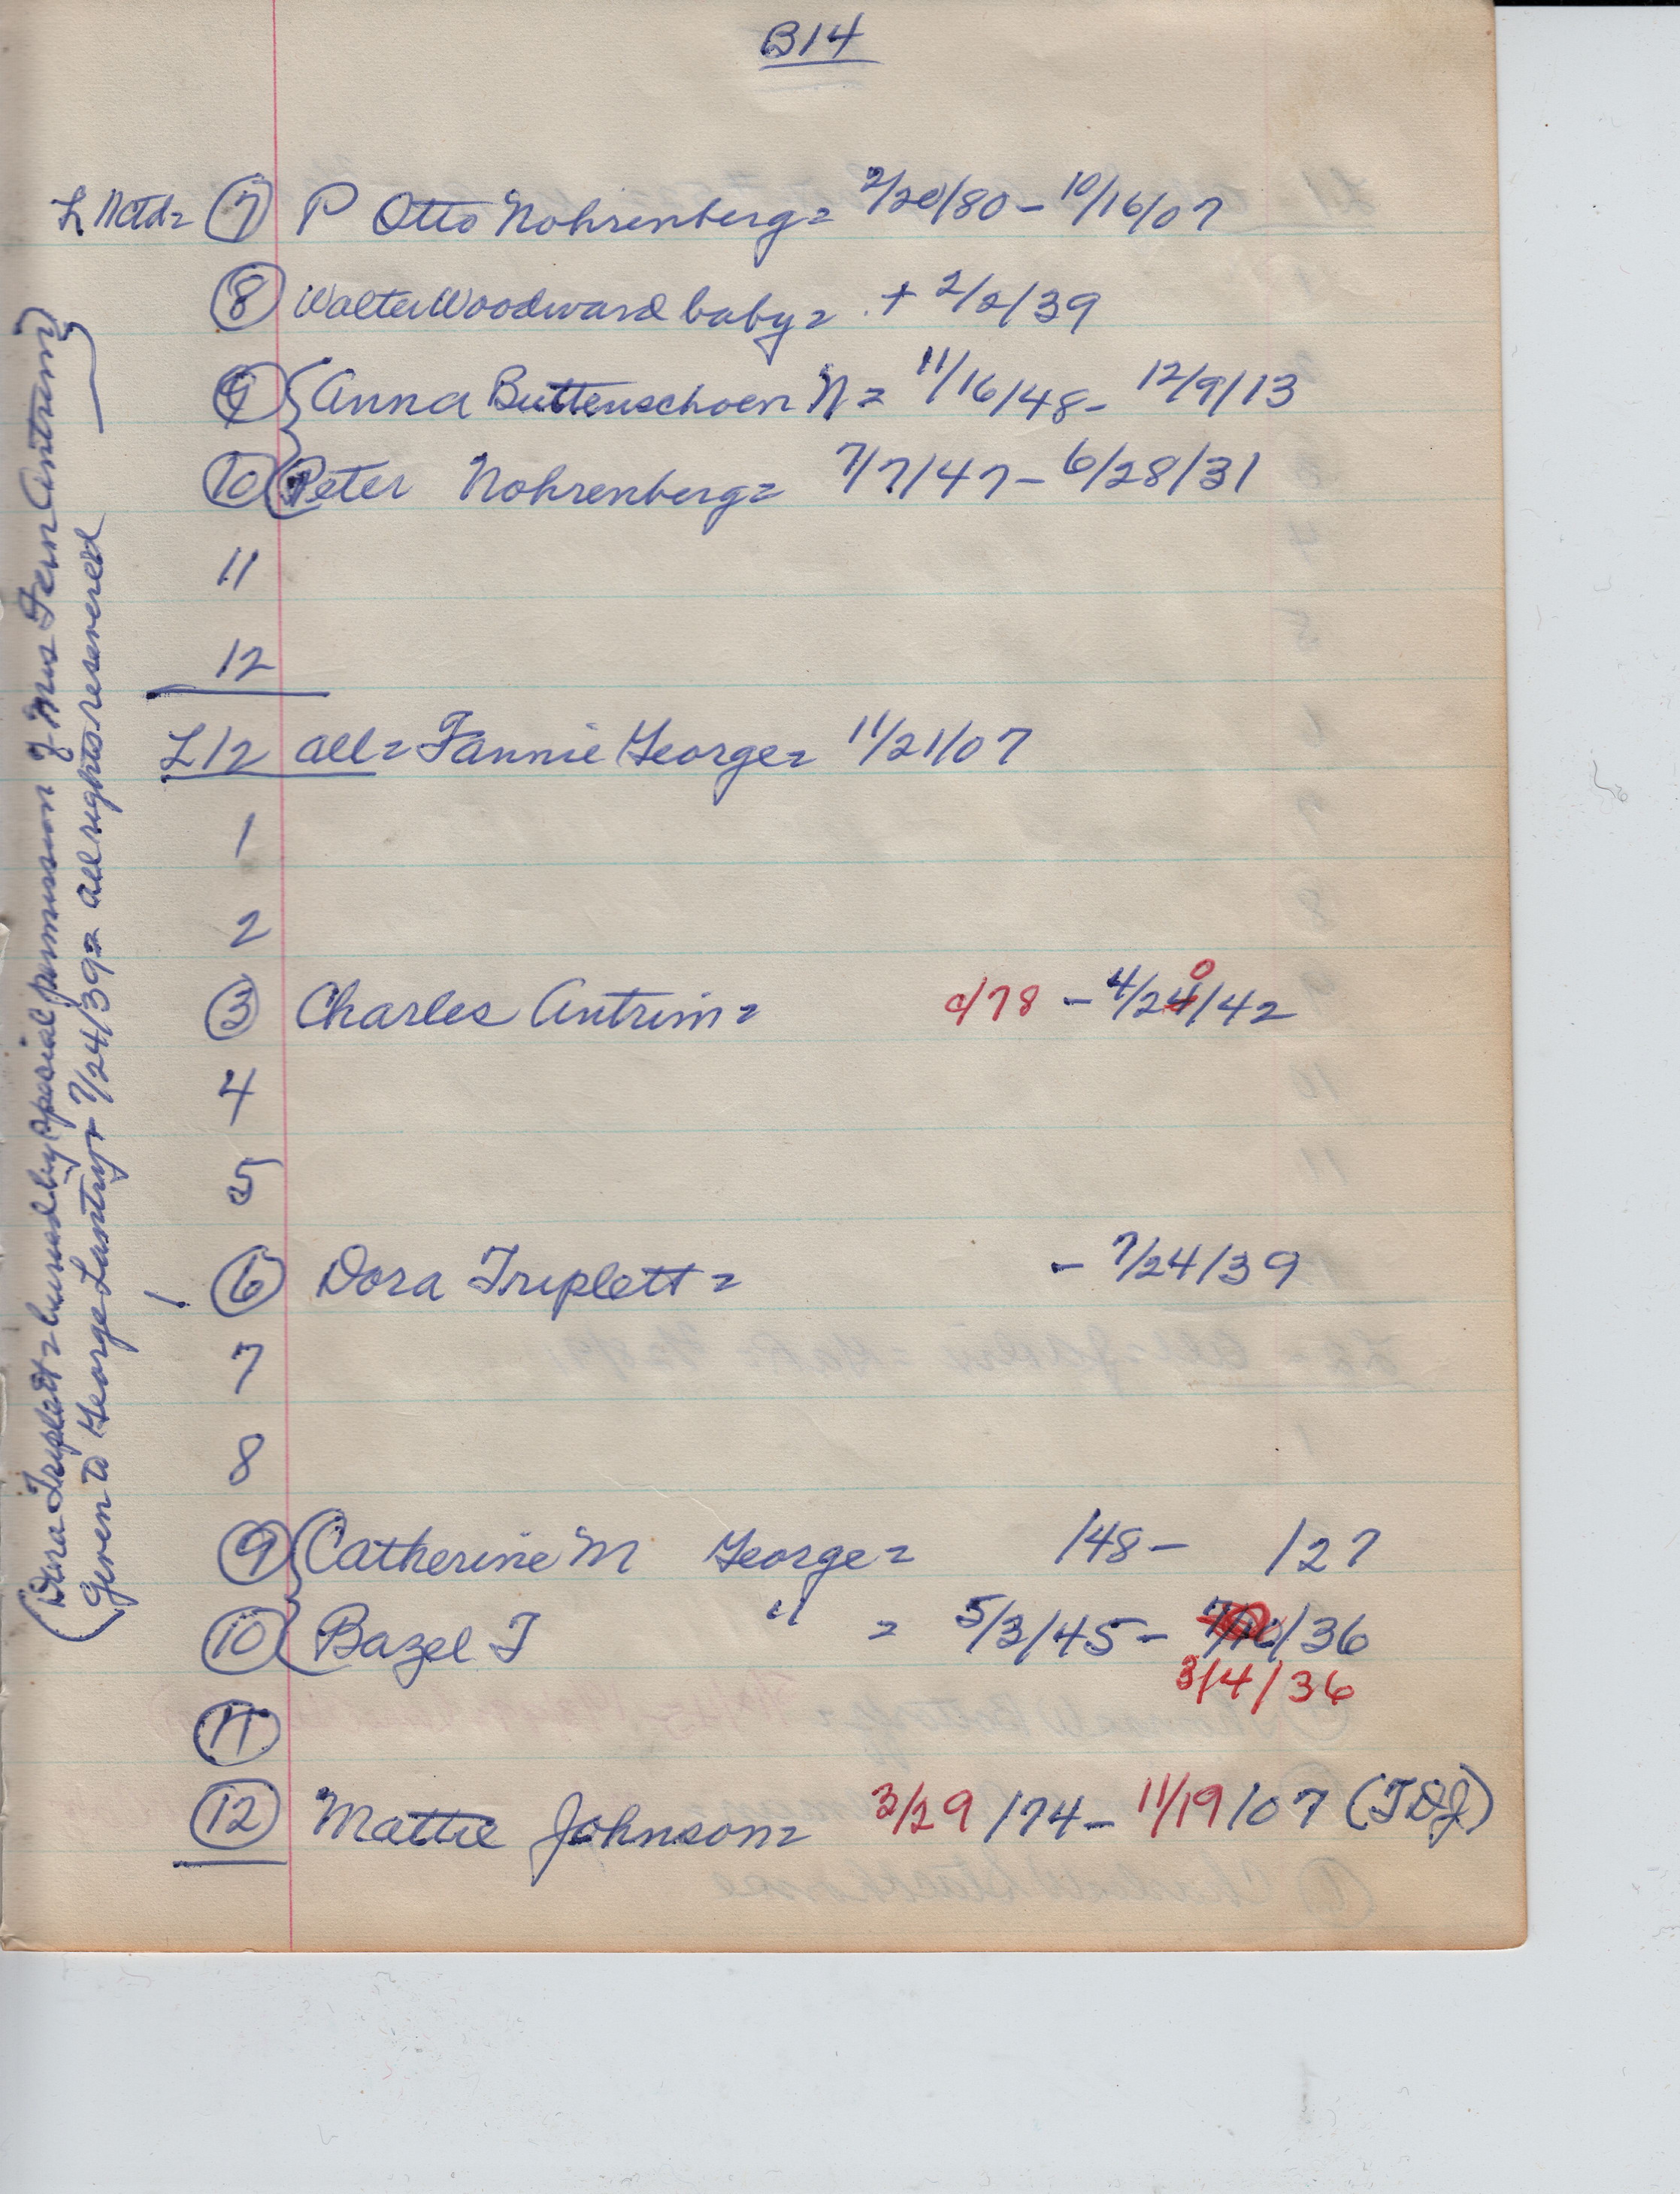 B14
7 P Otto Nohrenberg = 2/20/80 - 10/16/07
8 Walter Woodward baby = + 2/2/39
9 Anna Buttenschoen N = 11/16/48 - 12/9/13
10 Peter Nohrenberg = 7/7/47 - 6/28/31
11
12
L12 all = Fannie George = 11/21/07
1
2
3 Charles Antrim = c/78 - 4/24/42
0
4
5
6 Dora Triplett = - 7/24/39
7
8
9 Catherine M George = /48 - /27
10 Bazel T " = 5/3/45 - /36
3/4/36
11
12 Mattie Johnson = 3/29/74 - 11/19/07 (TDJ)
(Dora Triplett = buried by special permission of Mrs Fern Antrim)
given to George Lantry + 7/24/39 = all rights reserved